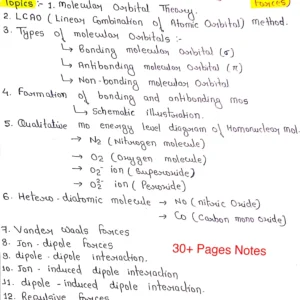 Topics :- 1. Molecular Orbital Theory. Forces)
2. LCAO (Linear Combination of Atomic Orbital) method.
3. Types of molecular Orbitals :-
↳ Bonding molecular orbital (σ)
↳ Antibonding molecular orbital (π)
↳ Non-bonding molecular Orbital
4. Formation of bonding and antibonding mos
↳ Schematic illustration.
5. Qualitative mo energy level diagram of Homonuclear mol.
→ N₂ (Nitrogen molecule)
→ O₂ (Oxygen molecule)
→ O₂⁻ ion (Superoxide)
→ O₂²⁻ ion (Peroxide)
6. Hetero-diatomic molecule → No (nitric Oxide)
→ Co (Carbon mono oxide)
7. Vander waals forces
8. Ion-dipole forces
9. dipole-dipole interaction.
10. Ion - induced dipole interaction
11. dipole-induced dipole interaction.
12. Repulsive forces
30+ Pages Notes